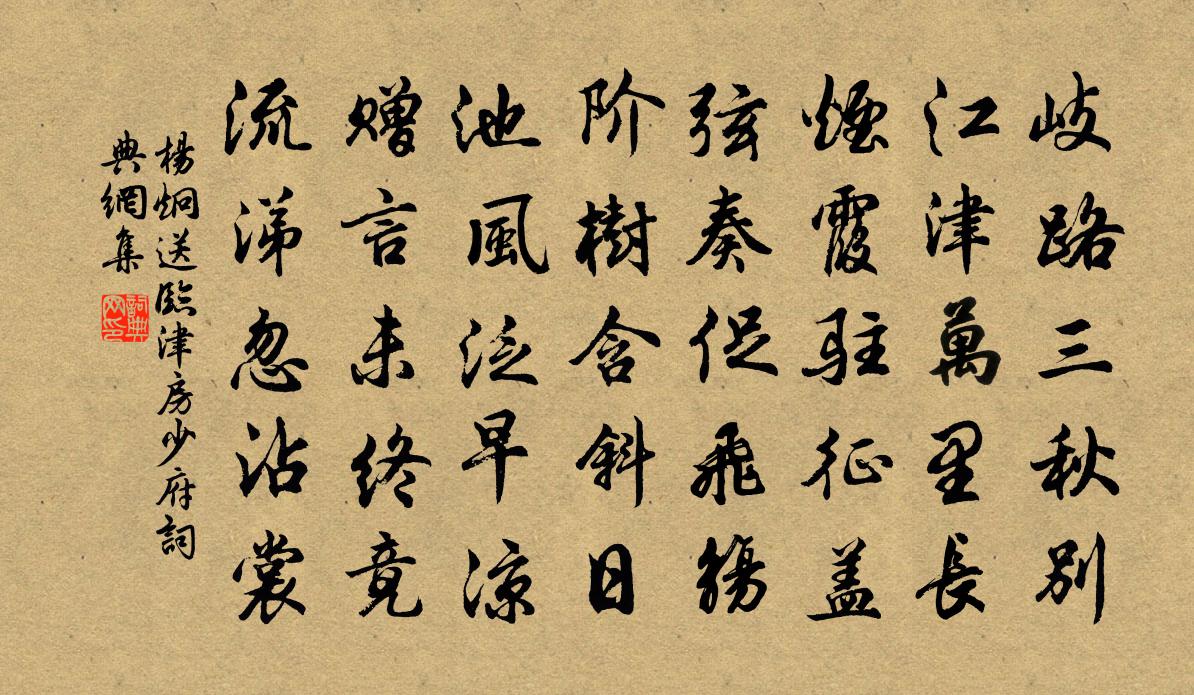 岐路三秋別
江津萬里長
煙霞駐征盖
弦奏促飛觴
阶樹含斜日
池風泛早涼
赠言未終竟
流涕忽沾裳
楊炯送臨津房少府詞
典網集
詞典
网印